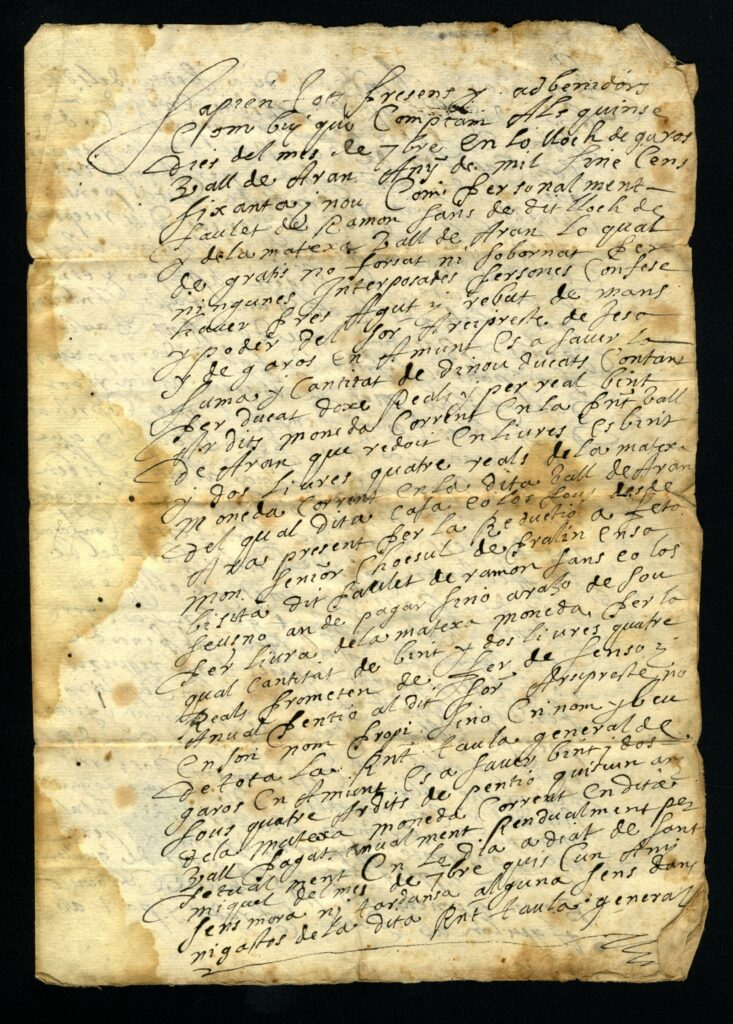 Sapien tots presens y adbenidors
Com buy que Comptam Als quinse
Dies del mes de 7bre En lo lloch de garos
Ball de Aran Any de mil sine Cens
sixanta y nou Com personalment
Paulet de Ramon sans de dit lloch de
y de la matexa Ball de Aran lo qual
de gratis no forsat ni sobornat per
ningunes Interposades persones Confese
haver pres Agut y rebut de mans
y poder del sor Arcipreste de
y de garos En Amunt Es a saver la
suma y Cantitat de dinou ducats Contan
per ducat doxe Reals y per real bint
Ardits moneda Corrent En la pnt ball
De Aran que redoit En liures Es bint
y dos liures quatre reals de la matexa
moneda Corrent En la dita ball de Aran
del qual dita casa eo los sous desde
Ara present per la Reductio a feta
mon senior Choesul de Pralin En sa
bisita dit Paulet de ramon sans eo los
seus no an de pagar sino a raho de sou
per liura de la matexa moneda per la
qual Cantitat de bint y dos liures quatre
Reals prometen de fer de senso y
Anual pentio al dit sor Arsipreste no
En son nom propi sino En nom y beu
de tota la Rnt taula general de
garos En Amunt Es a saver bint y dos
sous quatre Ardits de pentio quiscun any
de la matexa moneda Corrent En dita
Ball pagat anualment Rendualment per
petualment En lo dia a diat de sant
miquel del mes de 7bre quis Cun Any
sens mora ni tardansa alguna sens dans
ni gastos de la dita Rnt taula general